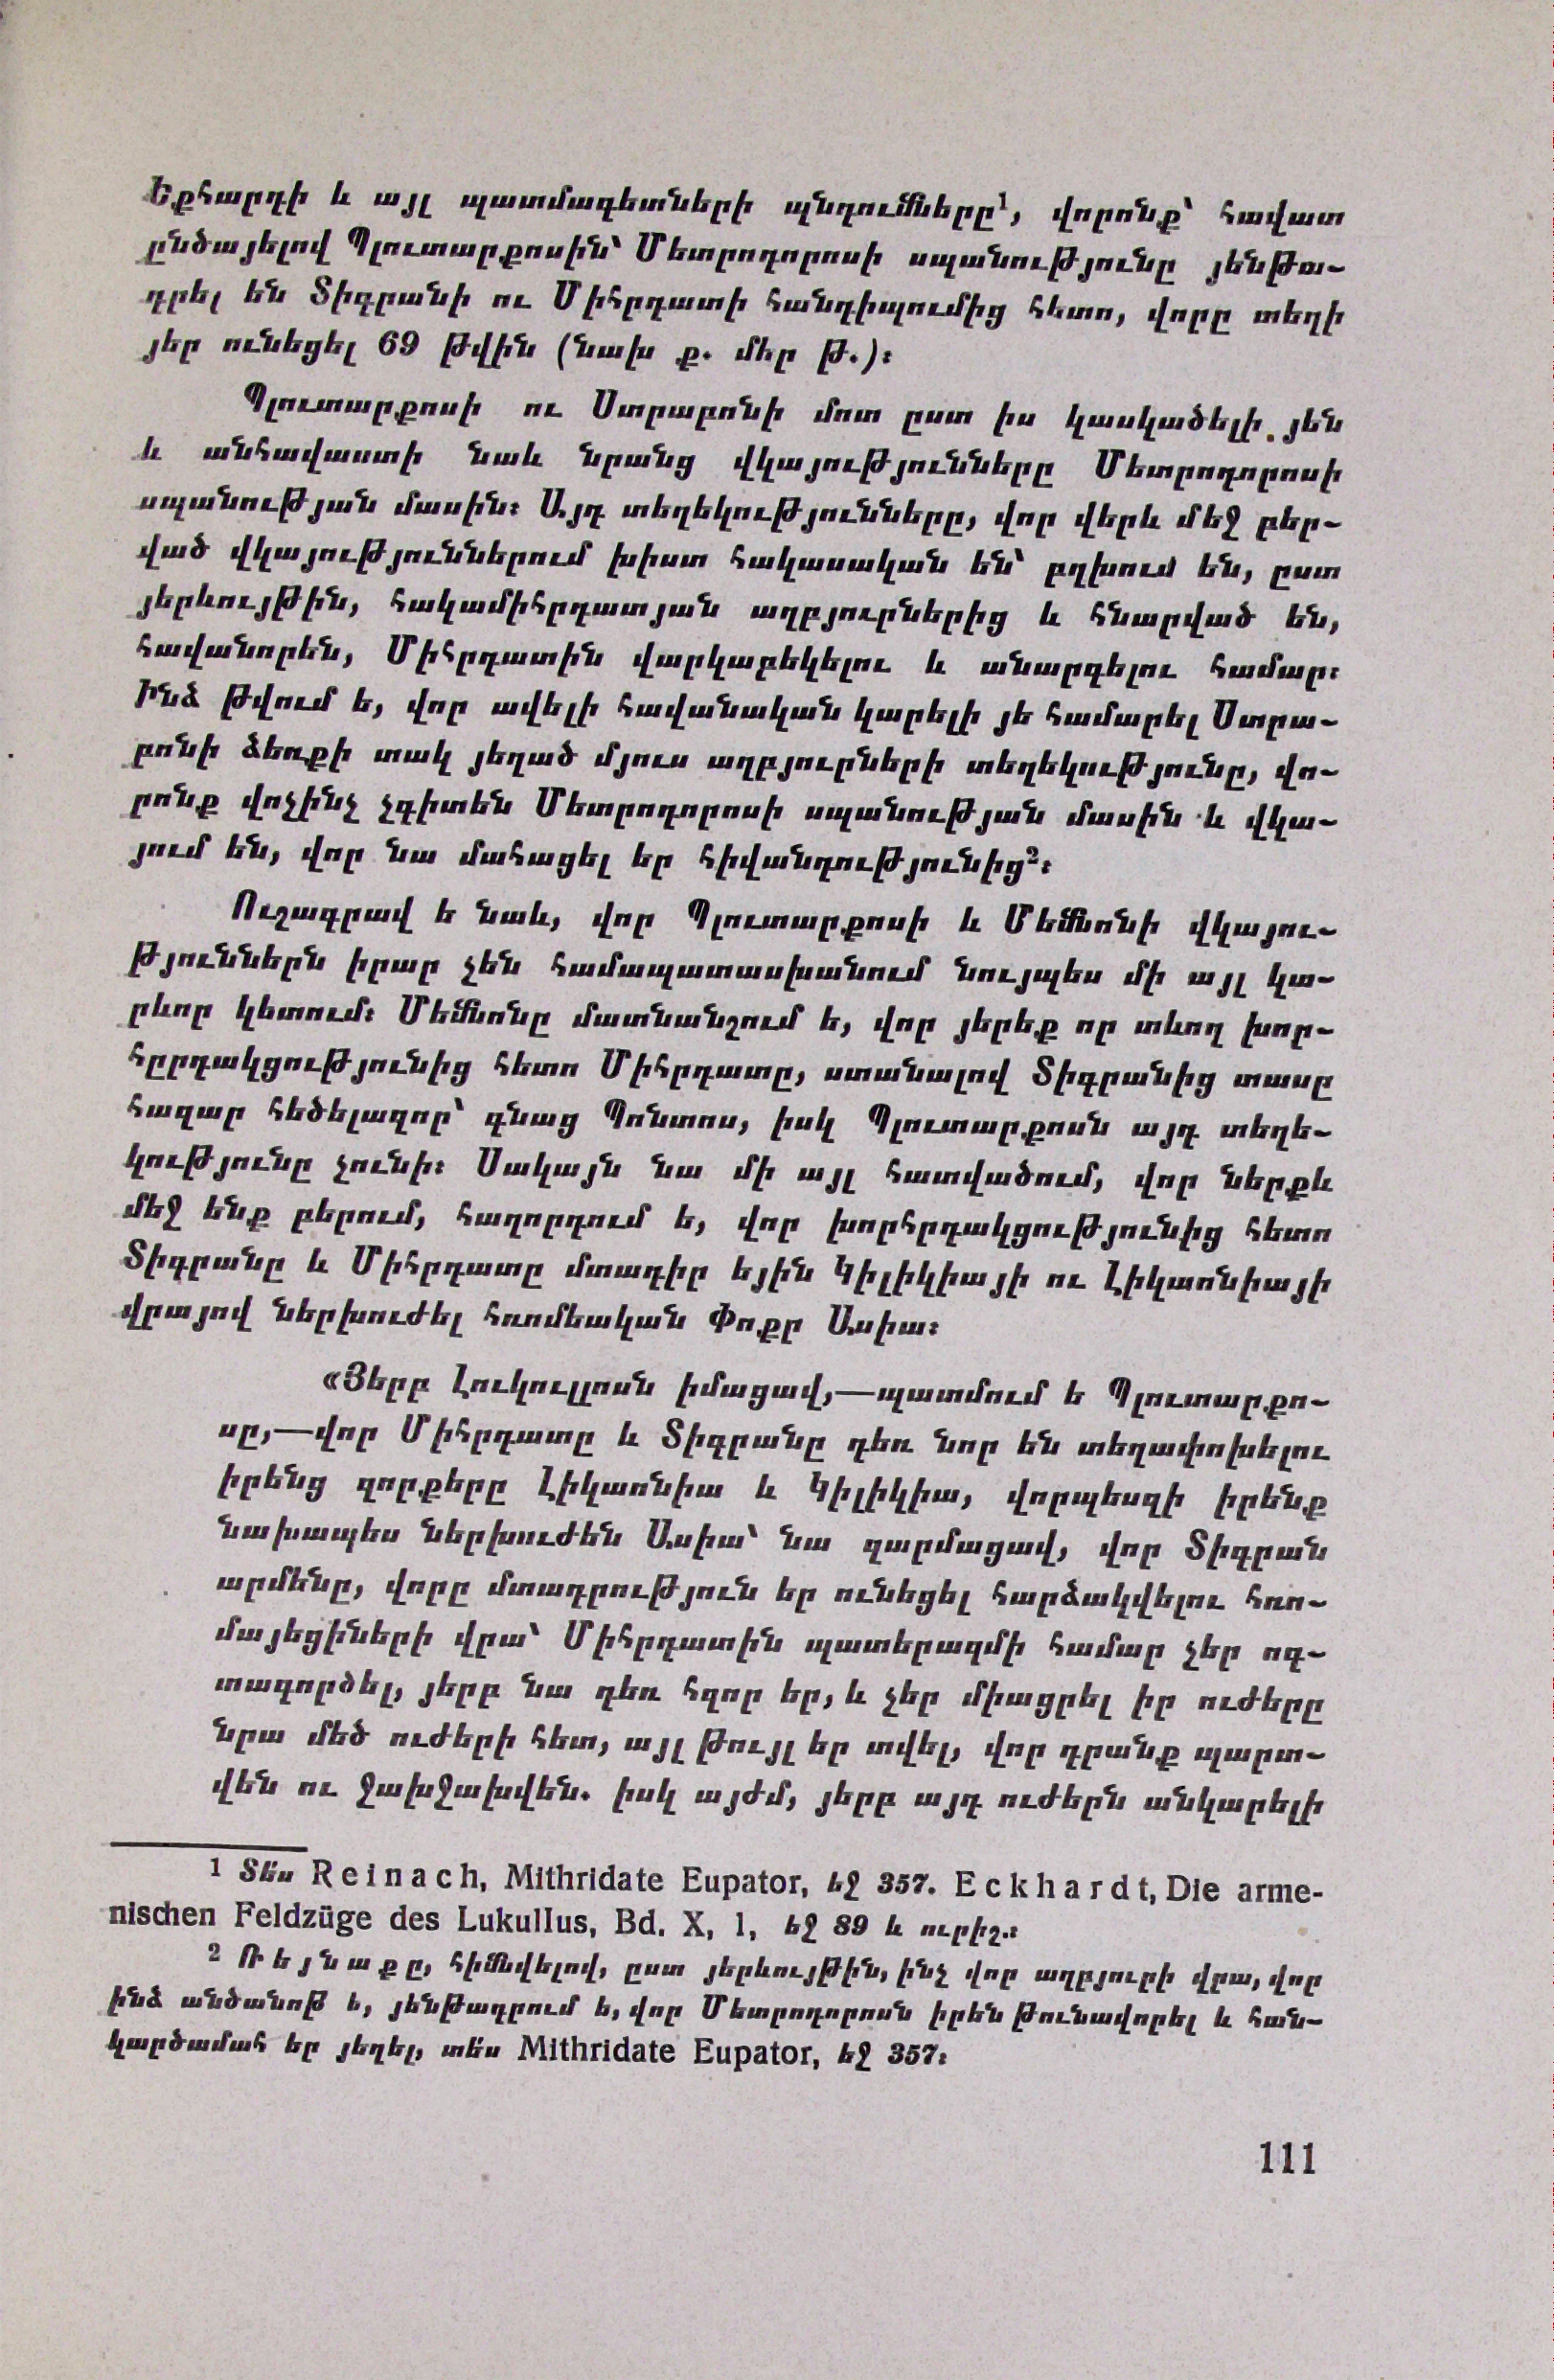 Եքհարդի և այլ պատմագետների պնդումները¹, վորոնք՝ հավատ
ընծայելով Պլուտարքոսին՝ Մետրոդորոսի սպանությունը յենթա-
դրել են Տիգրանի ու Միհրդատի հանդիպումից հետո, վորը տեղի
յեր ունեցել 69 թվին (նախ ք. մեր թ.)։
Պլուտարքոսի ու Ստրաբոնի մոտ ըստ իս կասկածելի յեն
և անհավաստի նաև նրանց վկայությունները Մետրոդորոսի
սպանության մասին։ Այդ տեղեկությունները, վոր վերև մեջ բեր-
ված վկայություններում խիստ հակասական են՝ բղխում են, ըստ
յերևույթին, հակամիհրդատյան աղբյուրներից և հնարված են,
հավանորեն, Միհրդատին վարկաբեկելու և անարգելու համար։
Ինձ թվում ե, վոր ավելի հավանական կարելի յե համարել Ստրա-
բոնի ձեռքի տակ յեղած մյուս աղբյուրների տեղեկությունը, վո-
րոնք վոչինչ չգիտեն Մետրոդորոսի սպանության մասին և վկա-
յում են, վոր նա մահացել եր հիվանդությունից²։
Ուշագրավ ե նաև, վոր Պլուտարքոսի և Մեմնոնի վկայու-
թյուններն իրար չեն համապատասխանում նույպես մի այլ կա-
րևոր կետում։ Մեմնոնը մատնանշում ե, վոր յերեք որ տևող խոր-
հըրդակցությունից հետո Միհրդատը, ստանալով Տիգրանից տասը
հազար հեծելազոր՝ գնաց Պոնտոս, իսկ Պլուտարքոսն այդ տեղե-
կությունը չունի։ Սակայն նա մի այլ հատվածում, վոր ներքև
մեջ ենք բերում, հաղորդում ե, վոր խորհրդակցությունից հետո
Տիգրանը և Միհրդատը մտադիր եյին Կիլիկիայի ու Լիկաոնիայի
վրայով ներխուժել հռոմեական Փոքր Ասիա։
«Յերբ Լուկուլլոսն իմացավ,—պատմում ե Պլուտարքո-
սը,—վոր Միհրդատը և Տիգրանը դեռ նոր են տեղափոխելու
իրենց զորքերը Լիկաոնիա և Կիլիկիա, վորպեսզի իրենք
նախապես ներխուժեն Ասիա՝ նա զարմացավ, վոր Տիգրան
արմենը, վորը մտադրություն եր ունեցել հարձակվելու հռո-
մայեցիների վրա՝ Միհրդատին պատերազմի համար չեր ոգ-
տագործել, յերբ նա դեռ հզոր եր, և չեր միացրել իր ուժերը
նրա մեծ ուժերի հետ, այլ թույլ եր տվել, վոր դրանք պարտ-
վեն ու ջախջախվեն. իսկ այժմ, յերբ այդ ուժերն անկարելի
¹ Տե՛ս Reinach, Mithridate Eupator, եջ 357. Eckhardt, Die arme-
nischen Feldzüge des Lukullus, Bd. X, 1, եջ 89 և ուրիշ.։
² Ռեյնաքը, հիմնվելով, ըստ յերևույթին, ինչ վոր աղբյուրի վրա, վոր
ինձ անծանոթ ե, յենթադրում ե, վոր Մետրոդորոսն իրեն թունավորել և հան-
կարծամահ եր յեղել, տե՛ս Mithridate Eupator, եջ 357։
111